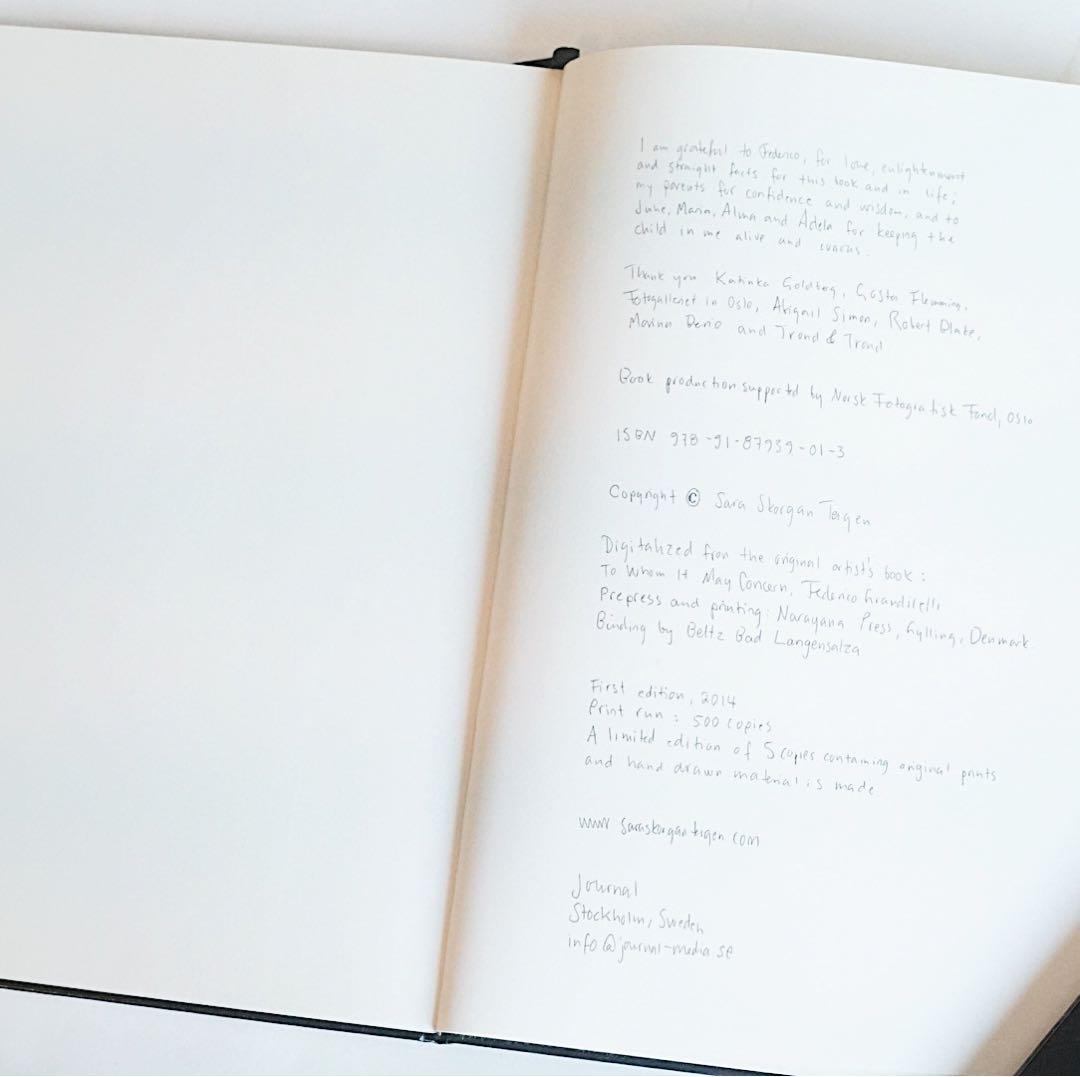 I am grateful to Federico, for love, enlightenment
and straight facts for this book and in life;
my parents for confidence and wisdom, and to
June, Maria, Alma and Adela for keeping the
child in me alive and
Thank you Katinka Goldberg, Gösta Flemming,
Fotogalleriet in Oslo, Abigail Simon, Robert Blake,
Marina Berio and Trond & Trond
Book production supported by Norsk Fotografisk Fond, Oslo
ISBN 978-91-87939-01-3
Copyright © Sara Skorgan Teigen
Digitalized from the original artist's book:
To Whom It May Concern, Federico
Prepress and printing: Narayana Press, Gylling, Denmark
Binding by Beltz Bad Langensalza
First edition, 2014
Print run: 500 copies
A limited edition of 5 copies containing original prints
and hand drawn material is made.
www saraskorganteigen com
Journal
Stockholm, Sweden
info@journal-media.se